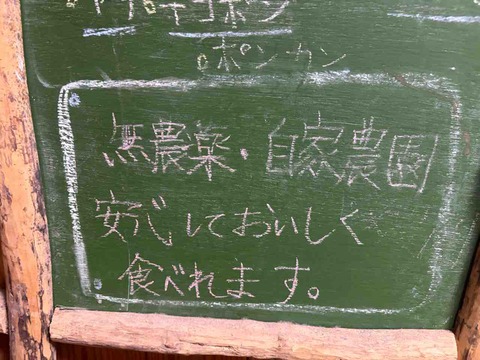 。ポンカン
無農薬・自家農園
安じしておいしく
食べれます。